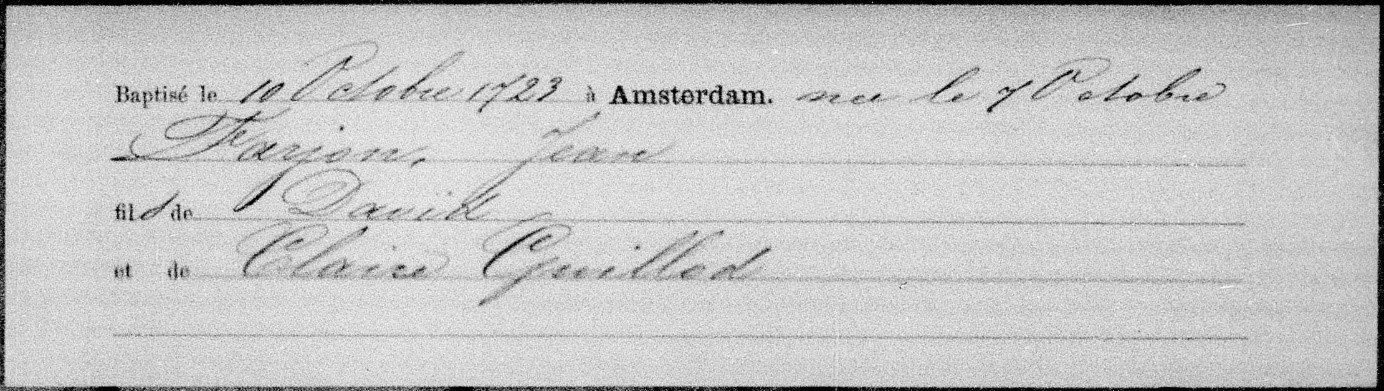 Baptisé le 10 Octobre 1723 à Amsterdam. née le 7 Octobre
Farjon, Jean
fils de David
et de Claire Guillod